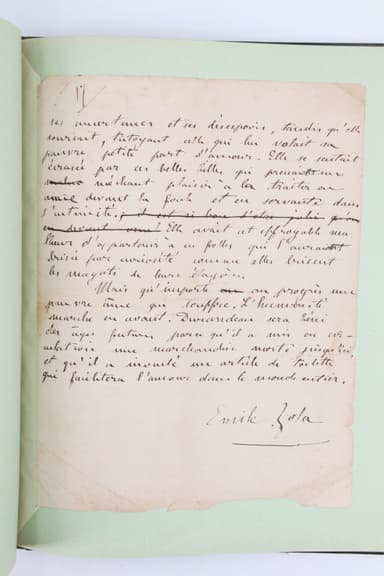 ses amertumes et ses désespoirs, tandis qu'elle
souriait, tutoyant celle qui lui volait sa
pauvre petite part d'amour. Elle se sentait
écrasée par ces belles filles qui prenaient un
méchant plaisir à la traiter en
amie devant la foule et en servante dans
l'intimité; il est si bon d'être jolie qu'on
en devient Elle avait cet effroyable mal-
heur d'appartenir à ces folles qui l'auraient
brisée par curiosité comme elles brisent
les magots de leurs étagères.
Mais qu'importe au progrès une
pauvre âme qui souffre. L'humanité
marche en avant. Durandeau sera béni
des âges futurs, parce qu'il a mis en cir-
culation une marchandise morte jusqu'ici,
et qu'il a inventé un article de toilette
qui facilitera l'amour dans le monde entier.
Emile Zola